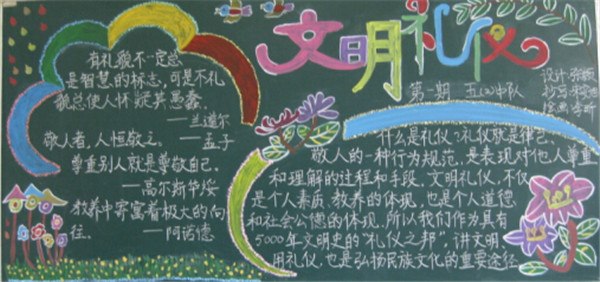 文明礼仪
第一期 五(2)中队
设计:张
抄写:
绘画:李昕
有礼貌不一定总
是智慧的标志,可是不礼
貌总使人怀疑其愚蠢。
——兰道尔
敬人者,人恒敬之。——孟子
尊重别人就是尊敬自己。
——高尔斯华绥
教养中寄寓着极大的向
往。 ——阿诺德
什么是礼仪?礼仪就是律己、
敬人的一种行为规范,是表现对他人尊重
和理解的过程和手段。文明礼仪,不仅
是个人素质、教养的体现,也是个人道德
和社会公德的体现。所以我们作为具有
5000年文明史的"礼仪之邦",讲文明、
用礼仪,也是弘扬民族文化的重要途径。